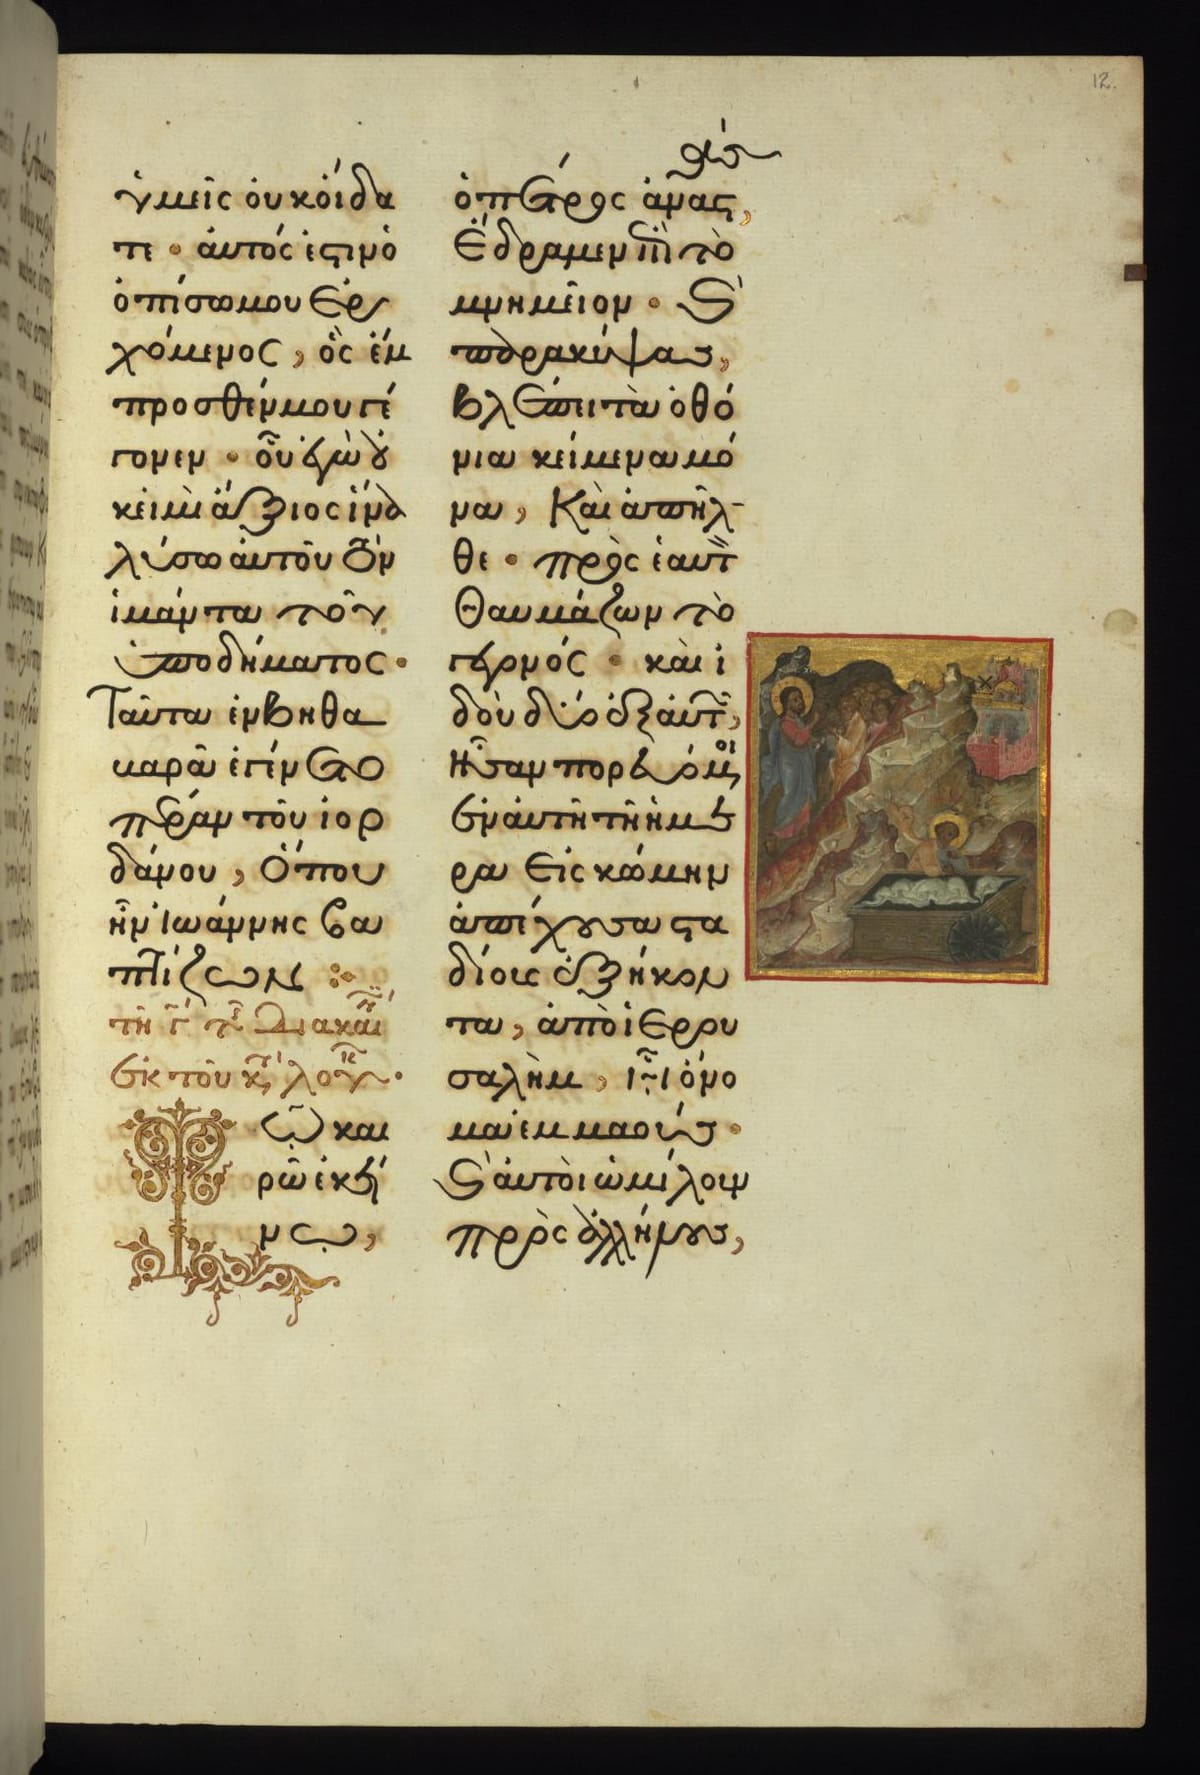 12.
ὑμεῖς οὐκ οἴδα
τε · αὐτός ἐστιν ὁ
ὀπίσω μου ἐρ
χόμενος, ὃς ἔμ
προσθέν μου γέ
γονεν · οὗ ἐγὼ οὐ
κ εἰμὶ ἄξιος ἵνα
λύσω αὐτοῦ τὸν
ἱμάντα τοῦ
ὑποδήματος ·
Ταῦτα ἐν βηθα
βαρᾶ ἐγένετο
πέραν τοῦ ἰορ
δάνου, ὅπου
ἦν ἰωάννης βα
πτίζων
τῇ γ τῆς διακαι
ἐκ τοῦ κτ λουκ ·
Τῷ και
ρῷ ἐκεί
νῳ,
ὁ πέτρος ἀναστὰς,
ἔδραμεν ἐπὶ τὸ
μνημεῖον · καὶ
παρακύψας,
βλέπει τὰ ὀθό
νια κείμενα μό
να, Καὶ ἀπῆλ
θε · πρὸς ἑαυτ
θαυμάζων τὸ
γεγονός · καὶ ἰ
δοὺ δύο ἐξ αὐτῶν,
ἦσαν πορευόμενοι
ἐν αὐτῇ τῇ ἡμέ
ρα εἰς κώμην
ἀπέχουσα στα
δίους ἑξήκον
τα, ἀπὸ ἱερου
σαλὴμ, ᾗ ὄνο
μα ἐμμαούς ·
καὶ αὐτοὶ ὡμίλουν
πρὸς ἀλλήλους,